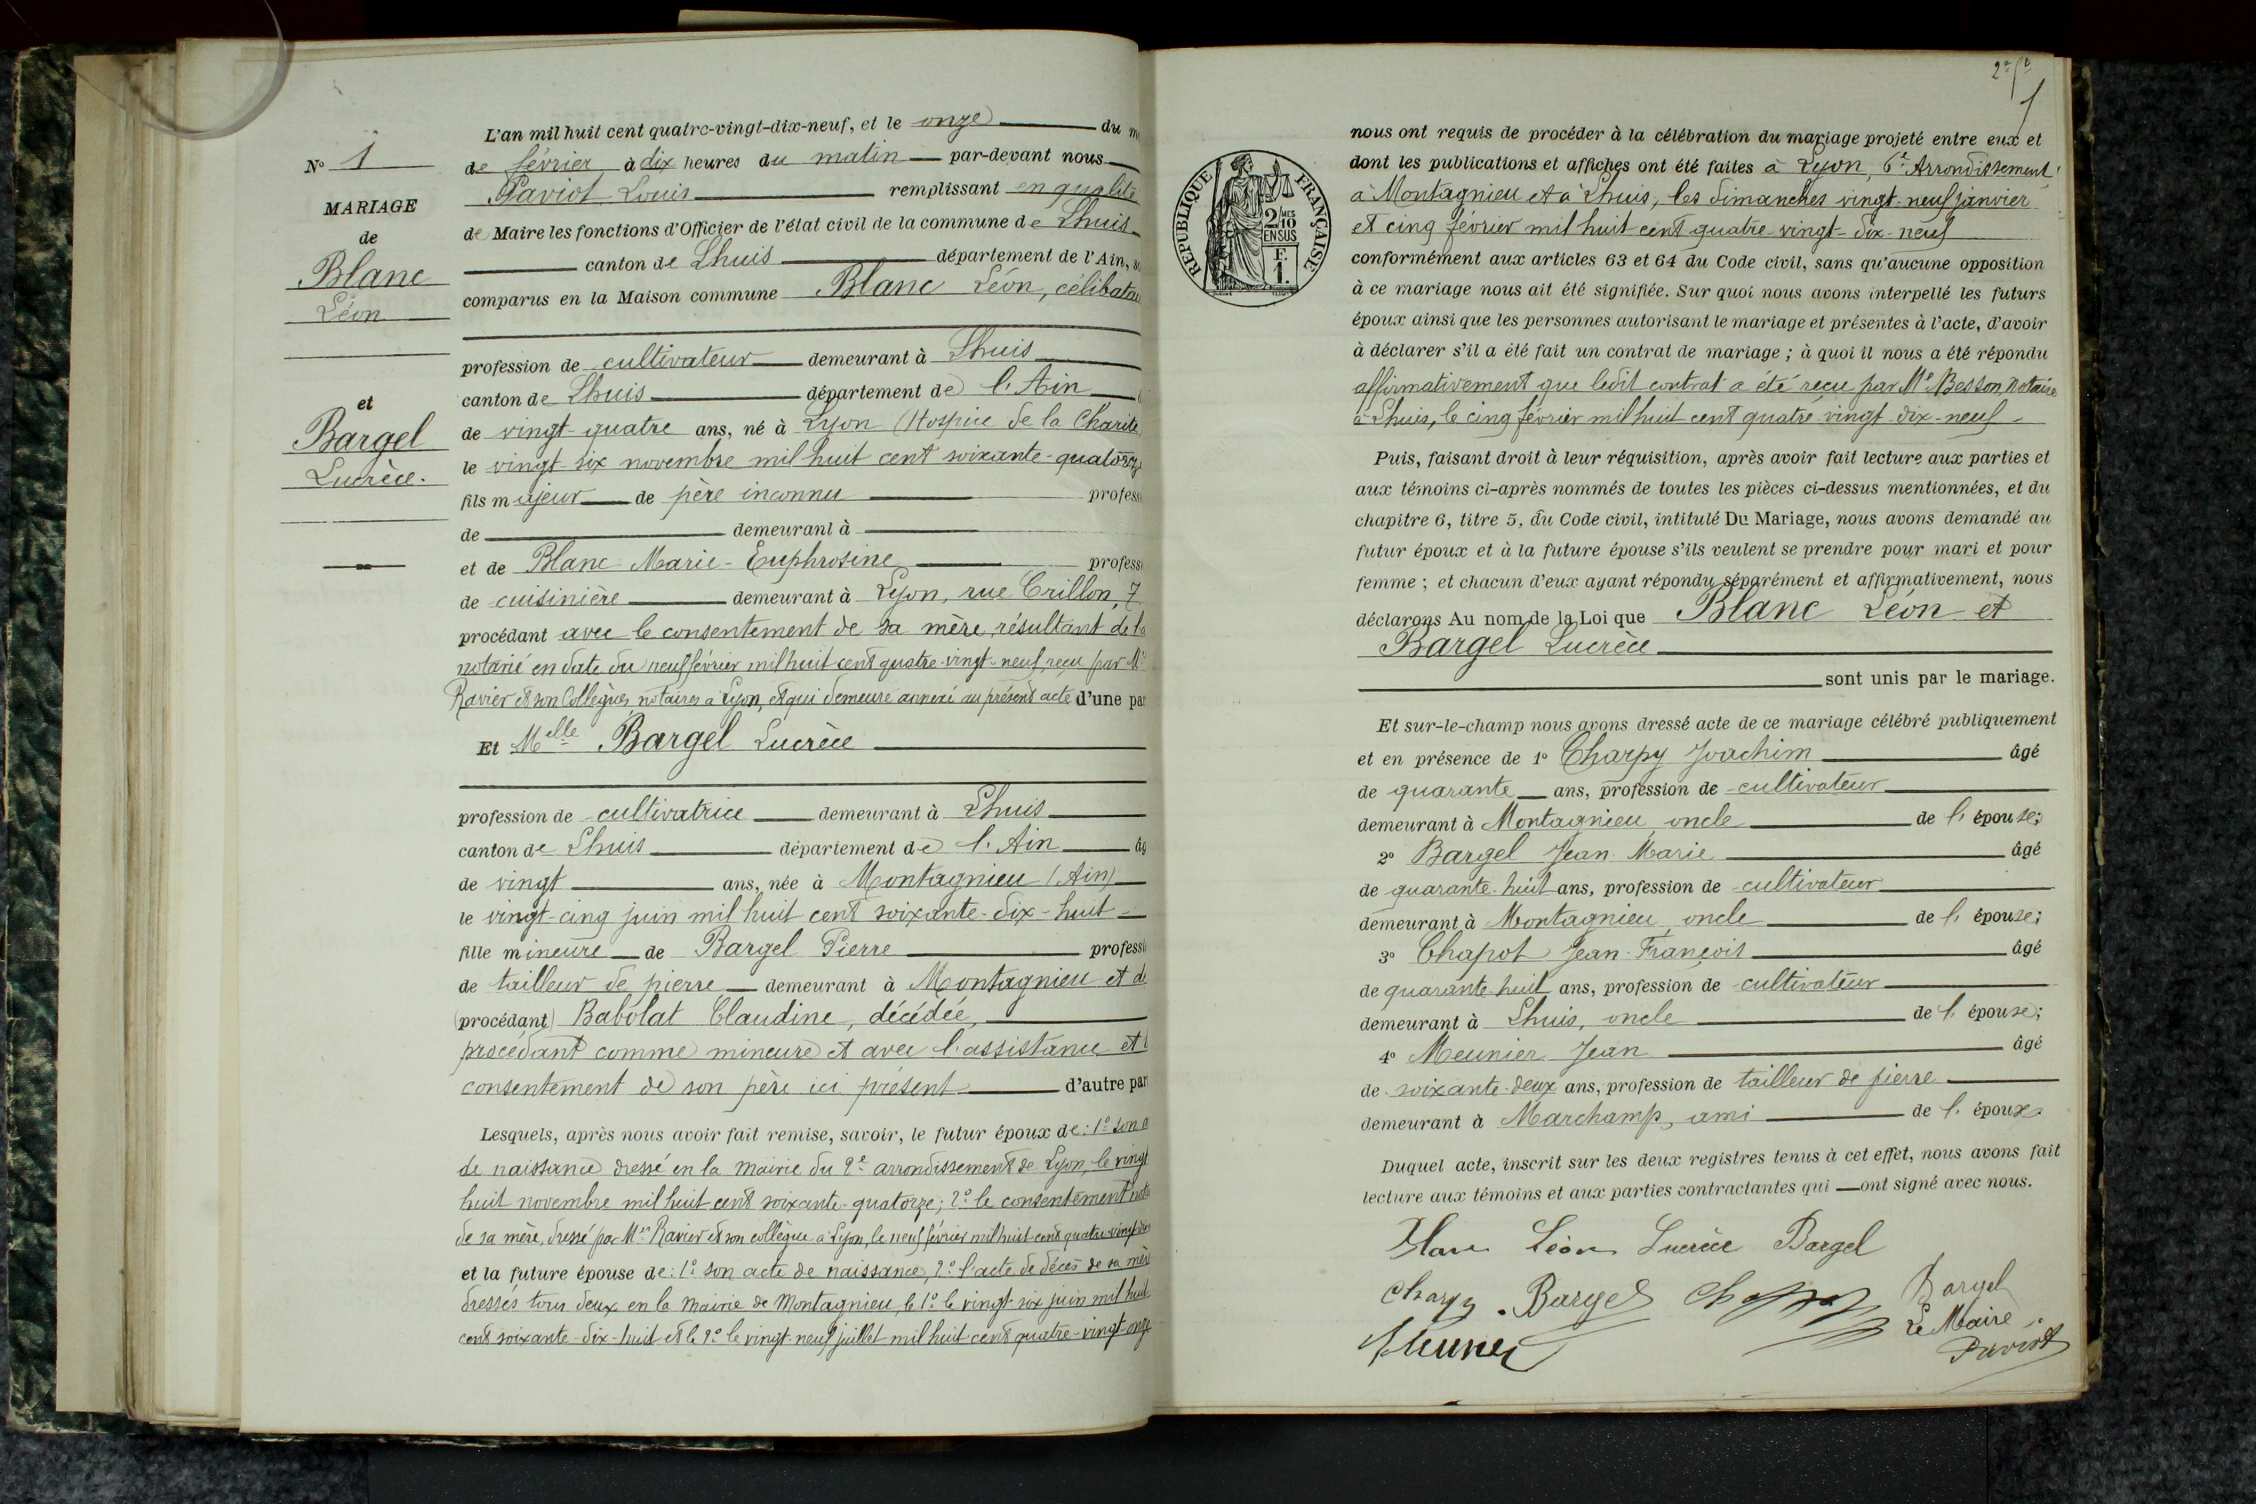 N° 1
MARIAGE
de
Blanc
Léon
et
Bargel
Lucrèce.
L'an mil huit cent quatre-vingt-dix-neuf, et le onze du m
de février à dix heures du matin par-devant nous
Paviot Louis remplissant en qualité
de Maire les fonctions d'Officier de l'état civil de la commune de Lhuis
canton de Lhuis département de l'Ain, s
comparus en la Maison commune Blanc Léon, célibatai
profession de cultivateur demeurant à Lhuis
canton de Lhuis département de l'Ain
de vingt-quatre ans, né à Lyon (Hospice de la Charité
le vingt-six novembre mil huit cent soixante-quatorze
fils majeur de père inconnu profess
de demeurant à
et de Blanc Marie-Euphrosine professi
de cuisinière demeurant à Lyon, rue Crillon, 7
procédant avec le consentement de sa mère, résultant de la
notarié en date du neuf février mil huit cent quatre-vingt-neuf, reçu par Me
Ravier et son Collègue, notaires à Lyon, et qui demeure annexé au présent acte d'une par
Et Melle Bargel Lucrèce
profession de cultivatrice demeurant à Lhuis
canton de Lhuis département de l'Ain âg
de vingt ans, née à Montagnieu (Ain)
le vingt-cinq juin mil huit cent soixante-dix-huit
fille mineure de Bargel Pierre professi
de tailleur de pierre demeurant à Montagnieu et de
(procédant) Babolat Claudine, décédée,
procédant comme mineure et avec l'assistance et l
consentement de son père ici présent d'autre par
Lesquels, après nous avoir fait remise, savoir, le futur époux de: 1° son a
de naissance dressé en la mairie du 2e arrondissement de Lyon, le vingt
huit novembre mil huit cent soixante-quatorze; 2° le consentement nota
de sa mère, dressé par Me Ravier et son collègue à Lyon, le neuf février mil huit cent quatre-vingt-dix
et la future épouse de: 1° son acte de naissance, 2° l'acte de décès de sa mère
dressés tous deux en la mairie de Montagnieu, le 1° le vingt-six juin mil huit
cent soixante-dix-huit et le 2° le vingt-neuf juillet mil huit cent quatre-vingt-onze
1
RÉPUBLIQUE FRANÇAISE
2/10 MES
EN SUS
F.
1.
nous ont requis de procéder à la célébration du mariage projeté entre eux et
dont les publications et affiches ont été faites à Lyon, 6e Arrondissement
à Montagnieu et à Lhuis, les dimanches vingt-neuf janvier
et cinq février mil huit cent quatre-vingt-dix-neuf
conformément aux articles 63 et 64 du Code civil, sans qu'aucune opposition
à ce mariage nous ait été signifiée. Sur quoi nous avons interpellé les futurs
époux ainsi que les personnes autorisant le mariage et présentes à l'acte, d'avoir
à déclarer s'il a été fait un contrat de mariage ; à quoi il nous a été répondu
affirmativement que ledit contrat a été reçu par Me Besson, notaire
à Lhuis, le cinq février mil huit cent quatre-vingt-dix-neuf
Puis, faisant droit à leur réquisition, après avoir fait lecture aux parties et
aux témoins ci-après nommés de toutes les pièces ci-dessus mentionnées, et du
chapitre 6, titre 5, du Code civil, intitulé Du Mariage, nous avons demandé au
futur époux et à la future épouse s'ils veulent se prendre pour mari et pour
femme ; et chacun d'eux ayant répondu séparément et affirmativement, nous
déclarons Au nom de la Loi que Blanc Léon et
Bargel Lucrèce
sont unis par le mariage.
Et sur-le-champ nous avons dressé acte de ce mariage célébré publiquement
et en présence de 1° Charpy Joachim âgé
de quarante ans, profession de cultivateur
demeurant à Montagnieu, oncle de l'épouse;
2° Bargel Jean-Marie âgé
de quarante-huit ans, profession de cultivateur
demeurant à Montagnieu, oncle de l'épouse;
3° Chapot Jean-François âgé
de quarante-huit ans, profession de cultivateur
demeurant à Lhuis, oncle de l'épouse;
4° Meunier Jean âgé
de soixante-deux ans, profession de tailleur de pierre
demeurant à Marchamp, ami de l'époux
Duquel acte, inscrit sur les deux registres tenus à cet effet, nous avons fait
lecture aux témoins et aux parties contractantes qui ont signé avec nous.
Blanc Léon Lucrèce Bargel
Charpy Bargel Chapot Bargel
Meunier Le Maire
Paviot